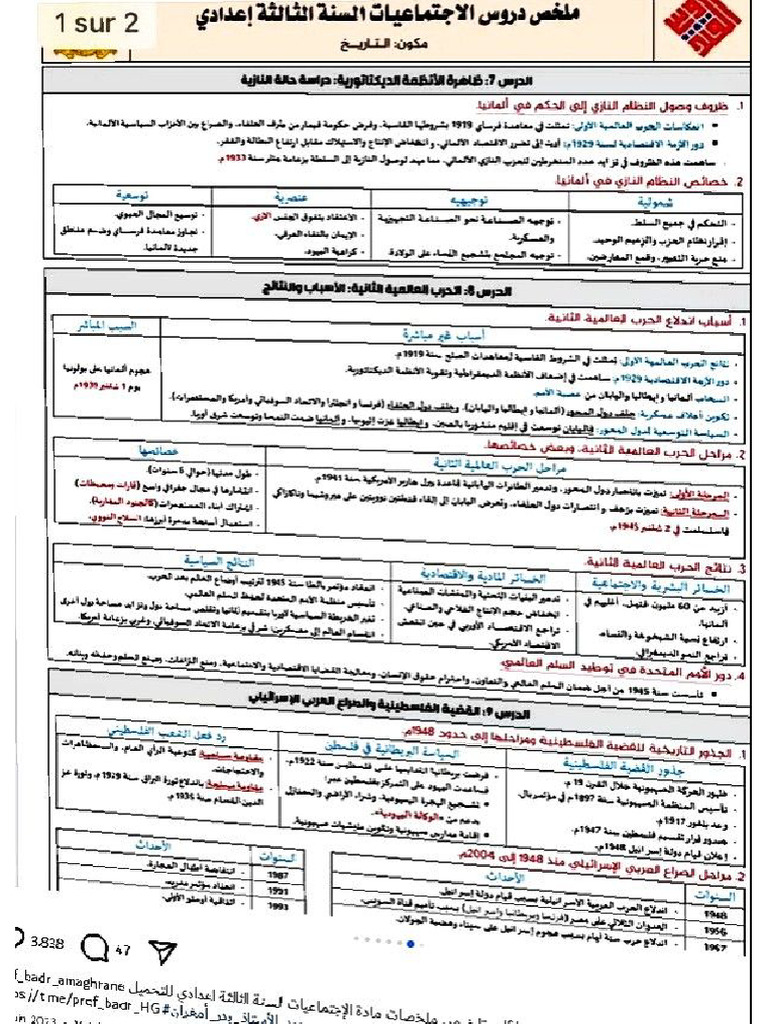 1 sur 2
ملخص دروس الاجتماعيات السنة الثالثة إعدادي
مكون: التاريخ
الدرس 7: ظاهرة الأنظمة الديكتاتورية: دراسة حالة النازية
1. ظروف وصول النظام النازي إلى الحكم في ألمانيا.
انعكاسات الحرب العالمية الأولى: تمثلت في معاهدة فرساي 1919 بشروطها القاسية. وفرض حكومة فيمار من طرف الحلفاء. والصراع بين الأحزاب السياسية الألمانية.
دور الأزمة الاقتصادية لسنة 1929م: أدت إلى تضرر الاقتصاد الألماني. وانخفاض الإنتاج والاستهلاك مقابل ارتفاع البطالة والفقر.
ساهمت هذه الظروف في تزايد عدد المنخرطين للحزب النازي الألماني. مما مهد لوصول النازية إلى السلطة بزعامة هتلر سنة 1933م
2. خصائص النظام النازي في ألمانيا.
شمولية
توجيهية
عنصرية
توسعية
- التحكم في جميع السلط.
- إقرار نظام الحزب والزعيم الوحيد.
- منع حرية التعبير، وقمع المعارضين.
- توجيه الصناعة نحو الصناعة التجهيزية
والعسكرية.
- توجيه المجتمع بتشجيع النساء على الولادة.
- الاعتقاد بتفوق الجنس الآري.
- الإيمان بالنقاء العرقي.
- كراهية اليهود.
- توسيع المجال الحيوي.
- تجاوز معاهدة فرساي وضم مناطق
جديدة لألمانيا.
الدرس 8: الحرب العالمية الثانية: الأسباب والنتائج
1. أسباب اندلاع الحرب العالمية الثانية.
أسباب غير مباشرة
السبب المباشر
- نتائج الحرب العالمية الأولى: تمثلت في الشروط القاسية لمعاهدات الصلح سنة 1919م.
- دور الأزمة الاقتصادية 1929م: ساهمت في إضعاف الأنظمة الديمقراطية وتقوية الأنظمة الديكتاتورية.
- انسحاب ألمانيا وإيطاليا واليابان من عصبة الأمم.
- تكوين أحلاف عسكرية: حلف دول المحور (ألمانيا وإيطاليا واليابان). وحلف دول الحلفاء (فرنسا وإنجلترا والاتحاد السوفياتي وأمريكا والمستعمرات).
- السياسة التوسعية لدول المحور: فاليابان توسعت في إقليم منشوريا بالصين. وإيطاليا غزت إثيوبيا. وألمانيا ضمت النمسا وتوسعت شرق أوربا.
هجوم ألمانيا على بولونيا
يوم 1 شتنبر 1939م
2. مراحل الحرب العالمية الثانية. وبعض خصائصها.
مراحل الحرب العالمية الثانية
خصائصها
- المرحلة الأولى: تميزت بانتصار دول المحور. وتدمير الطائرات اليابانية قاعدة بيرل هاربر الأمريكية سنة 1941م
- المرحلة الثانية: تميزت بزحف وانتصارات دول الحلفاء. وتعرض اليابان إلى إلقاء قنبلتين نوويتين على هيروشيما وناكازاكي
فاستسلمت في 2 شتنبر 1945م.
- طول مدتها (حوالي 6 سنوات).
- انتشارها في مجال جغرافي واسع (قارات ومحيطات)
- اشتراك أبناء المستعمرات (كالجنود المغاربة).
- استعمال أسلحة مدمرة أبرزها: السلاح النووي.
3. نتائج الحرب العالمية الثانية.
الخسائر البشرية والاجتماعية
الخسائر المادية والاقتصادية
النتائج السياسية
- أزيد من 60 مليون قتيل، أغلبهم في
ألمانيا.
- ارتفاع نسبة الشيخوخة والنساء.
- تراجع النمو الديمغرافي.
- تدمير البنيات التحتية والمنشآت الصناعية
- انخفاض حجم الإنتاج الفلاحي والصناعي.
- تراجع الاقتصاد الأوربي في حين انتعش
الاقتصاد الأمريكي.
- انعقاد مؤتمر يالطا سنة 1945 لترتيب أوضاع العالم بعد الحرب.
- تأسيس منظمة الأمم المتحدة لحفظ السلم العالمي.
- تغير الخريطة السياسية لأوربا بتقسيم ألمانيا وتقلص مساحة دول وتزايد مساحة دول أخرى
- انقسام العالم إلى معسكرين: شرقي بزعامة الاتحاد السوفياتي، وغربي بزعامة أمريكا.
4. دور الأمم المتحدة في توطيد السلم العالمي.
تأسست سنة 1945 من أجل ضمان السلم العالمي والتعاون. واحترام حقوق الإنسان. ومعالجة القضايا الاقتصادية والاجتماعية. ومنع النزاعات. وصنع السلم وحفظه وبنائه.
الدرس 9: القضية الفلسطينية والصراع العربي الإسرائيلي
1. الجذور التاريخية للقضية الفلسطينية ومراحلها إلى حدود 1948م.
جذور القضية الفلسطينية
السياسة البريطانية في فلسطين
رد فعل الشعب الفلسطيني
- ظهور الحركة الصهيونية خلال القرن 19 م.
- تأسيس المنظمة الصهيونية سنة 1897م في مؤتمر بال.
- وعد بلفور 1917م.
- صدور قرار تقسيم فلسطين سنة 1947م.
- إعلان قيام دولة إسرائيل 1948م.
- فرضت بريطانيا انتدابها على فلسطين سنة 1922م.
فساعدت اليهود على التمركز بفلسطين عبر:
تشجيع الهجرة اليهودية، وشراء الأراضي والمنازل
بدعم من «الوكالة اليهودية».
إقامة مدارس صهيونية وتكوين منظمات صهيونية.
- مقاومة سياسية كتوعية الرأي العام. والمظاهرات
والاحتجاجات.
- مقاومة مسلحة: باندلاع ثورة البراق سنة 1929م. وثورة عز
الدين القسام سنة 1935م.
2. مراحل الصراع العربي الإسرائيلي منذ 1948 إلى 2004م.
السنوات
الأحداث
1948 - اندلاع الحرب العربية الإسرائيلية بسبب قيام دولة إسرائيل.
1956 - العدوان الثلاثي على مصر (فرنسا وبريطانيا وإسرائيل) بسبب تأميم قناة السويس.
1967 - اندلاع حرب ستة أيام بسبب هجوم إسرائيل على سيناء وهضبة الجولان.
السنوات
الأحداث
1987 - انتفاضة أطفال الحجارة.
1991 - انعقاد مؤتمر مدريد.
1993 - اتفاقية أوسلو الأولى.
3.828
47
ملخصات مادة الاجتماعيات لسنة الثالثة اعدادي للتحميل f_badr_amaghrane
#الأستاذ_بدر_أمغران s://t.me/pref_badr_HG